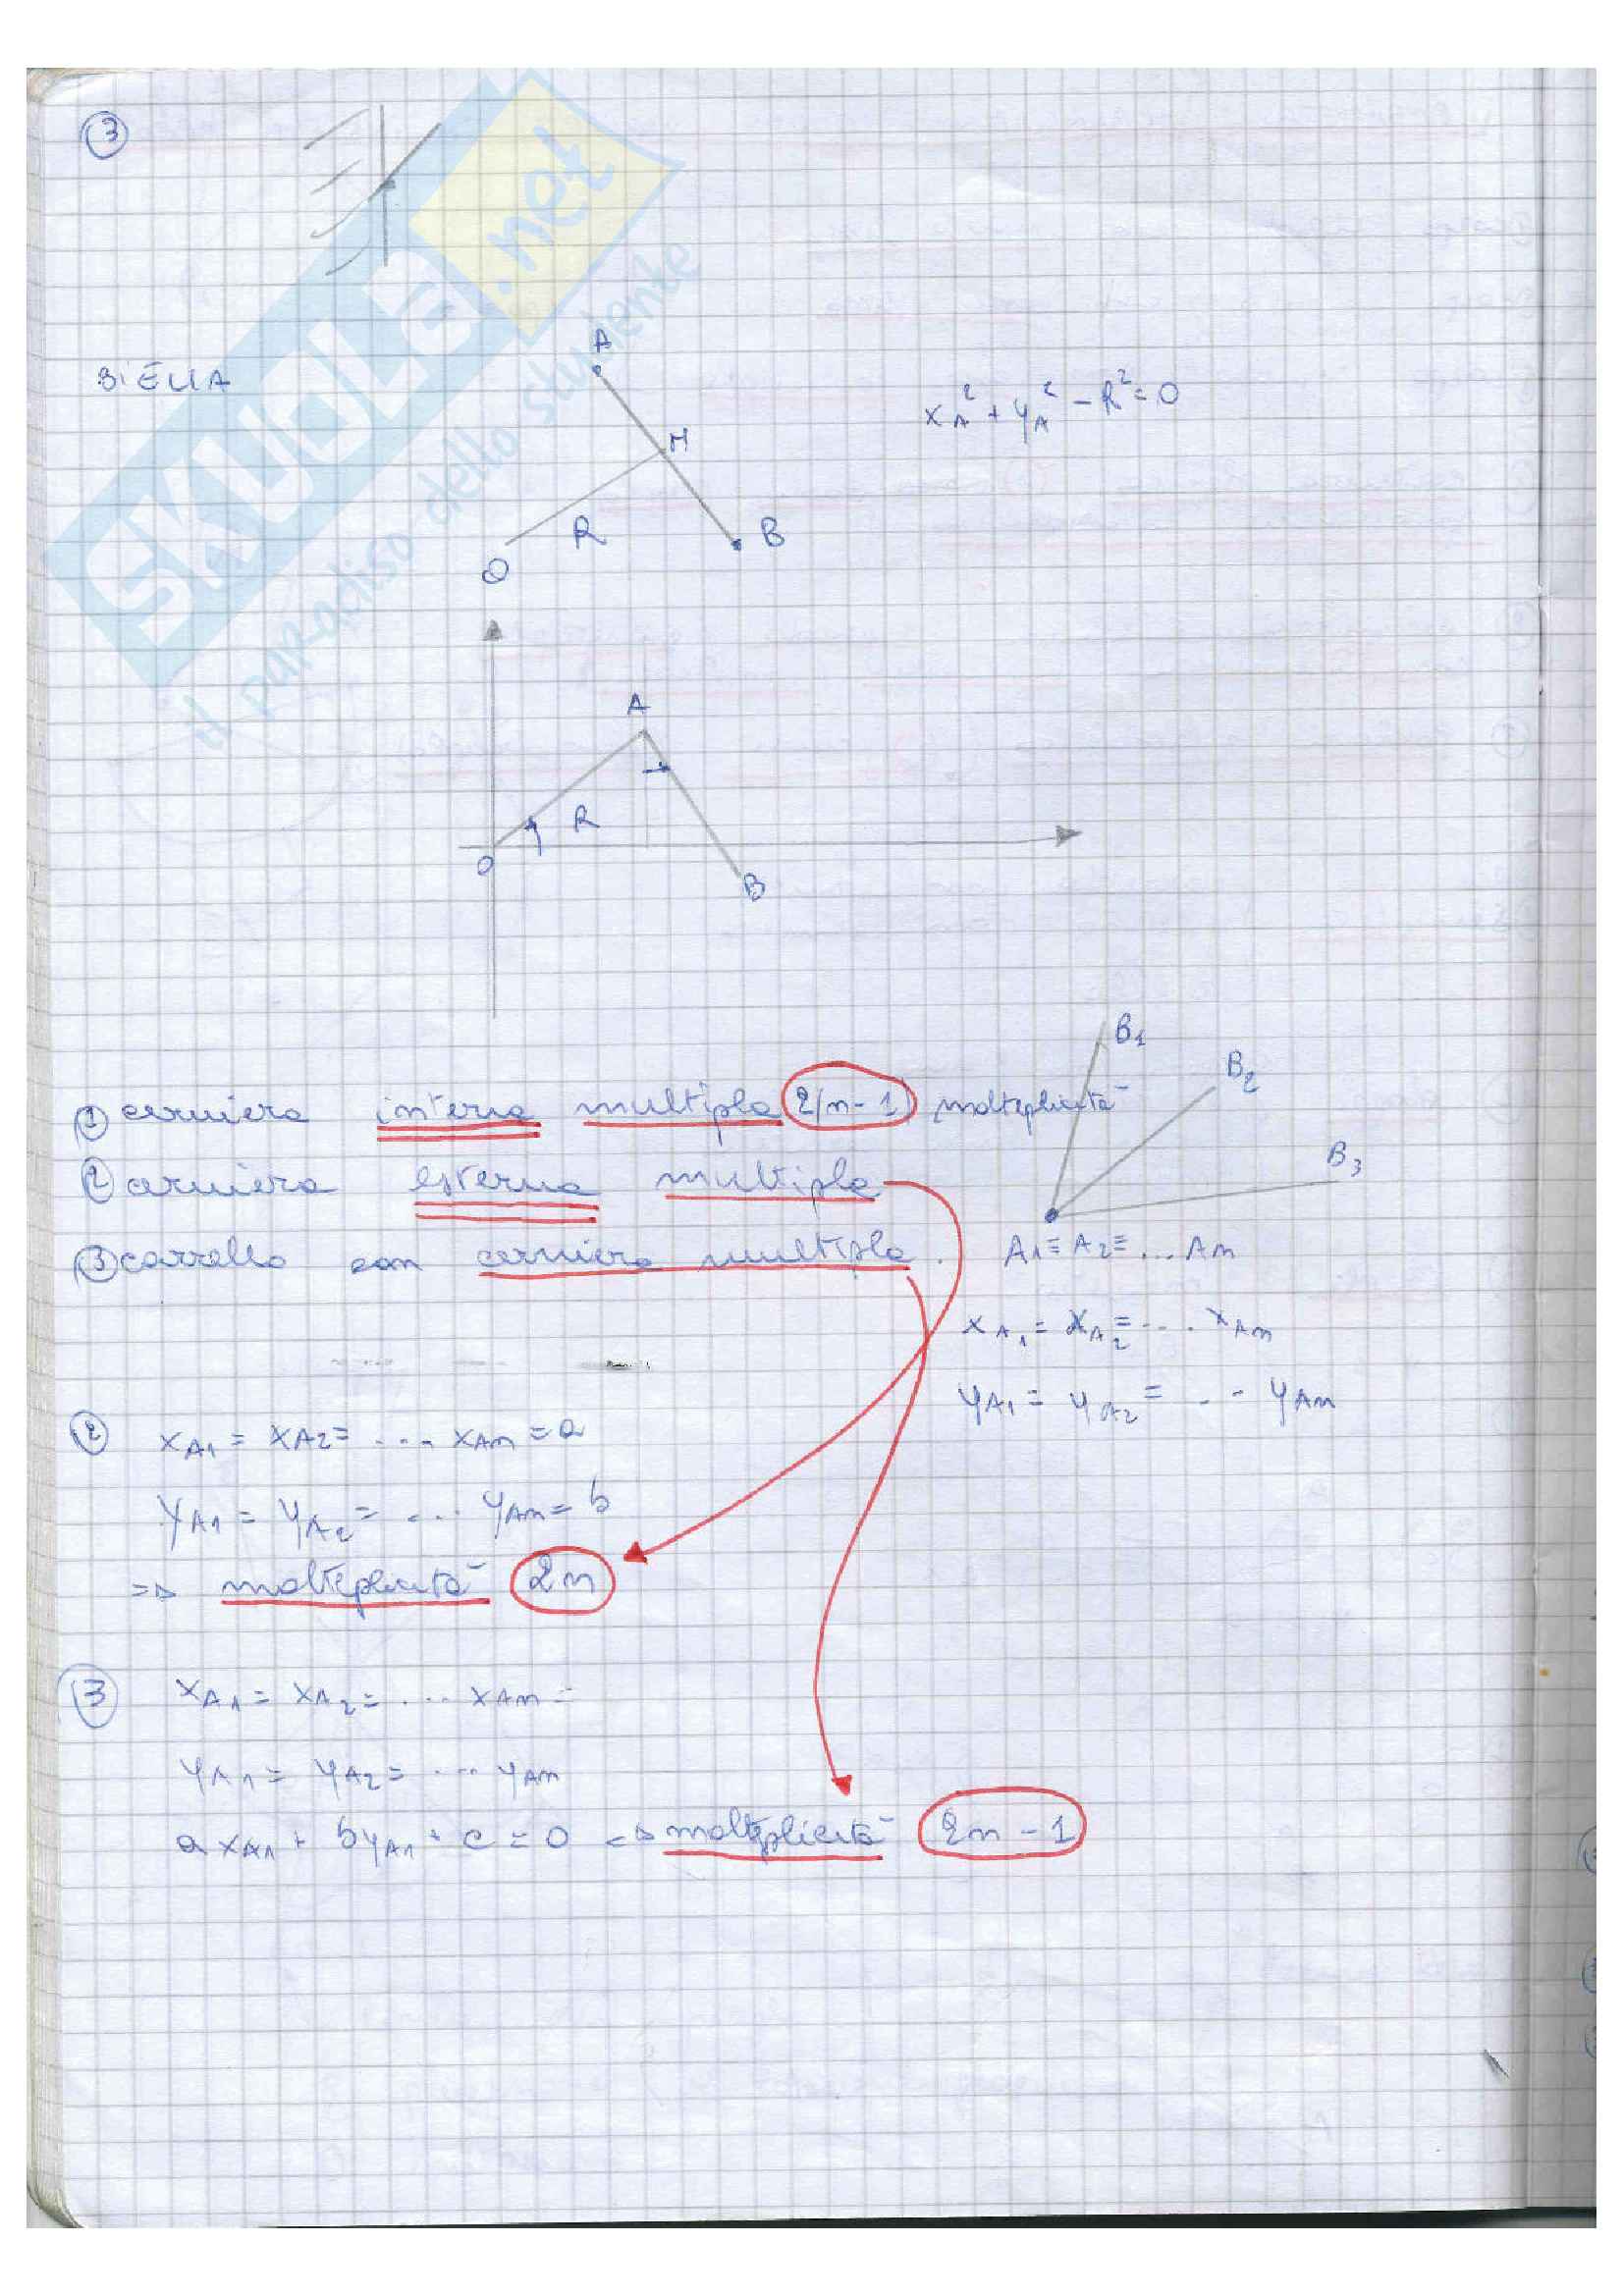 ③
SKUOLA.net
il paradiso dello studente
BIELLA
A
M
R
B
O
x_A² + y_A² - R² = 0
A
R
O
B
B₁
B₂
B₃
① cerniera interna multipla 2(n-1) molteplicità
② cerniera esterna multipla
③ carrello con cerniera multipla.
A₁ ≡ A₂ ≡ ... An
x_A₁ = x_A₂ = ... x_An
y_A₁ = y_A₂ = ... y_An
② x_A₁ = x_A₂ = ... x_An = a
y_A₁ = y_A₂ = ... y_An = b
=> molteplicità 2n
③ x_A₁ = x_A₂ = ... x_An =
y_A₁ = y_A₂ = ... y_An
a x_A₁ + b y_A₁ + c = 0 => molteplicità 2n - 1